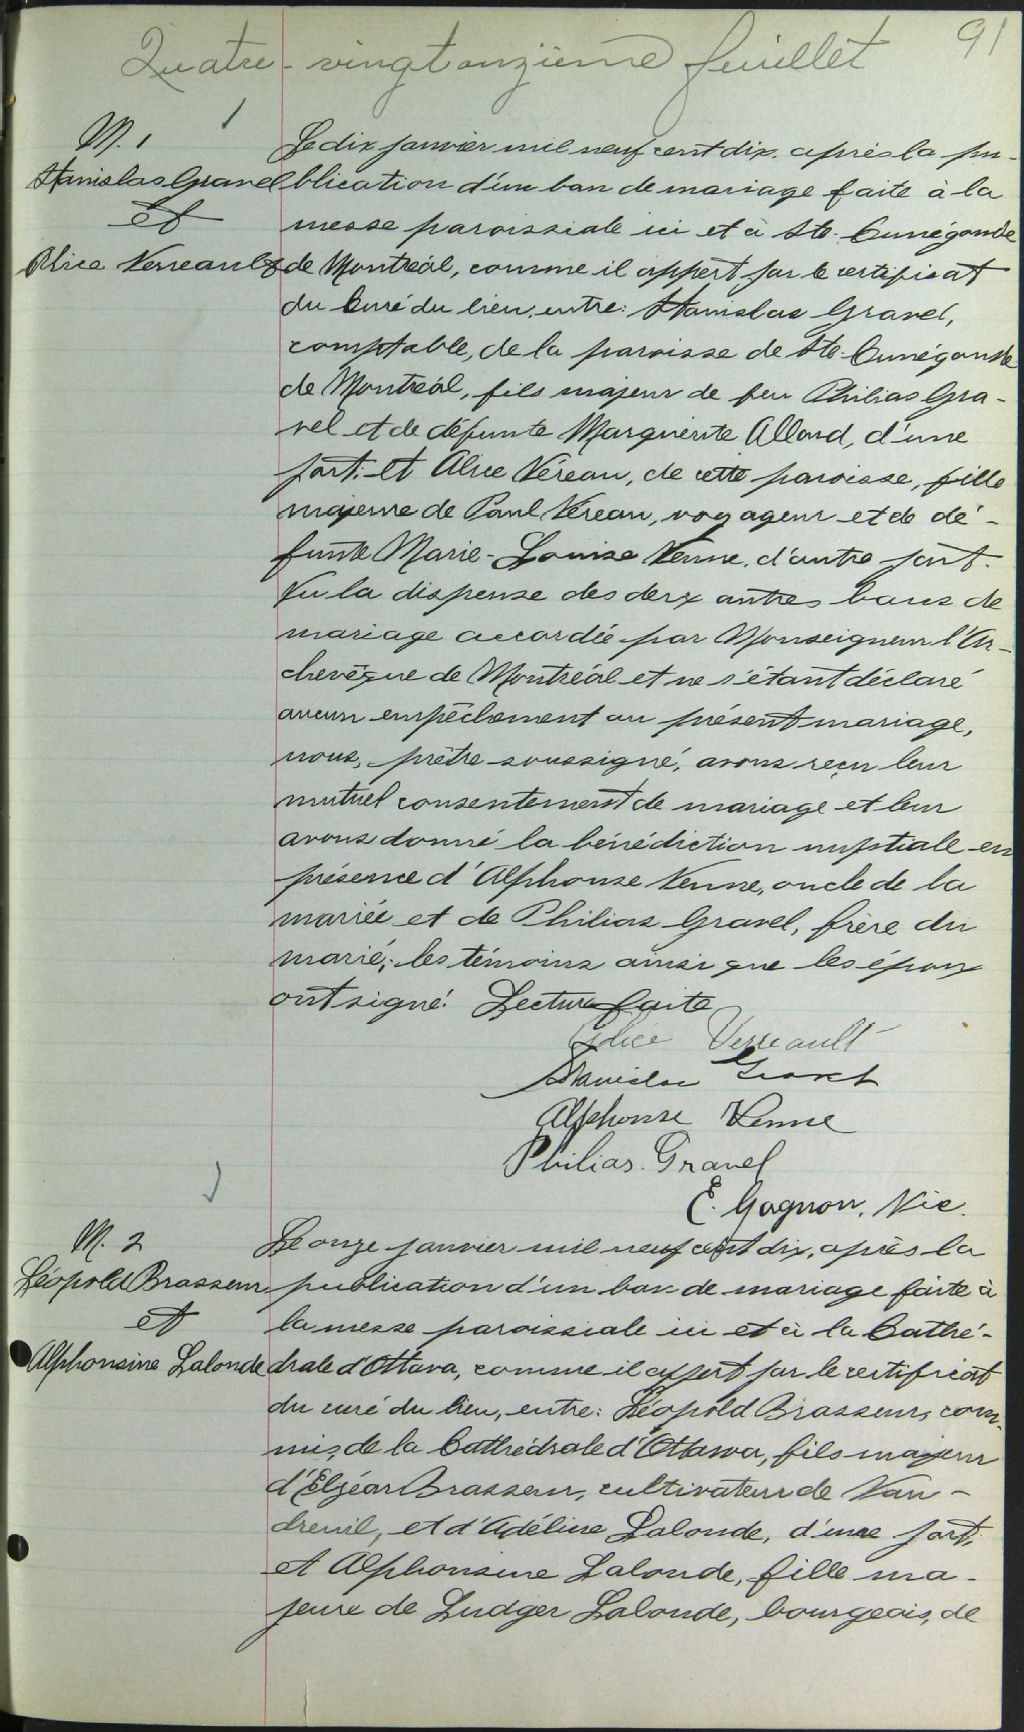 91
Quatre-vingt onzième feuillet
M. 1
Stanislas Gravel
et
Alice Verreault
Le dix janvier mil neuf cent dix, après la pu-
blication d'un ban de mariage faite à la
messe paroissiale ici et à Ste. Cunégonde
de Montréal, comme il appert par le certificat
du Curé du lieu, entre: Stanislas Gravel,
comptable, de la paroisse de Ste. Cunégonde
de Montréal, fils majeur de feu Philias Gra-
vel et de défunte Marguerite Allard, d'une
part; et Alice Véreau, de cette paroisse, fille
majeure de Paul Véreau, voyageur et de dé-
funte Marie-Louise Venne, d'autre part.
Vu la dispense des deux autres bans de
mariage accordée par Monseigneur l'Ar-
chevêque de Montréal et ne s'étant déclaré
aucun empêchement au présent mariage,
nous, prêtre soussigné, avons reçu leur
mutuel consentement de mariage et leur
avons donné la bénédiction nuptiale en
présence d'Alphonse Venne, oncle de la
mariée et de Philias Gravel, frère du
marié; les témoins ainsi que les époux
ont signé. Lecture faite
Alice Verreault
Stanislas Gravel
Alphonse Venne
Philias. Gravel
E. Gagnon, Vic.
M. 2
Léopold Brasseur
et
Alphonsine Lalonde
Le onze janvier mil neuf cent dix, après la
publication d'un ban de mariage faite à
la messe paroissiale ici et à la Cathé-
drale d'Ottawa, comme il appert par le certificat
du curé du lieu, entre: Léopold Brasseur, com-
mis, de la Cathédrale d'Ottawa, fils majeur
d'Elzéar Brasseur, cultivateur de Vau-
dreuil, et d'Adéline Lalonde, d'une part;
et Alphonsine Lalonde, fille ma-
jeure de Ludger Lalonde, bourgeois, de